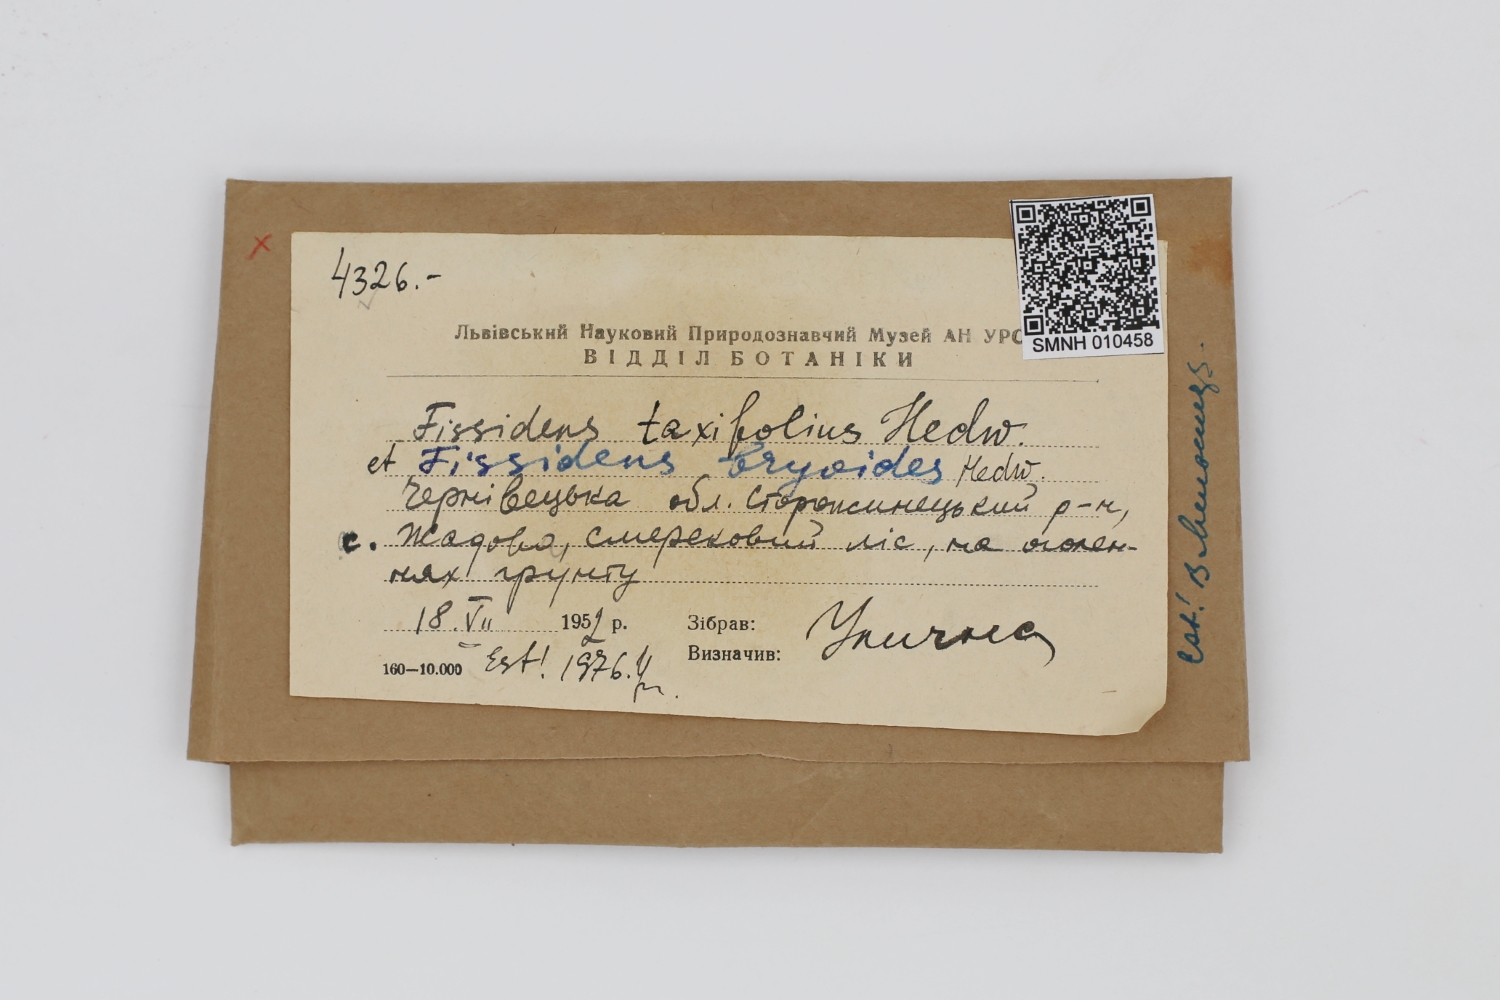 4326.-
Львівський Науковий Природознавчий Музей АН УРС
ВІДДІЛ БОТАНІКИ
SMNH 010458
Fissidens taxifolius Hedw.
et Fissidens bryoides Hedw.
Чернівецька обл. Сторожинецький р-н,
с. Жадова, смерековий ліс, на оголен-
нях ґрунту
18.VII 1952 р.
Зібрав:
Визначив:
Уличка
160—10.000 Est! 1976.
Est! В